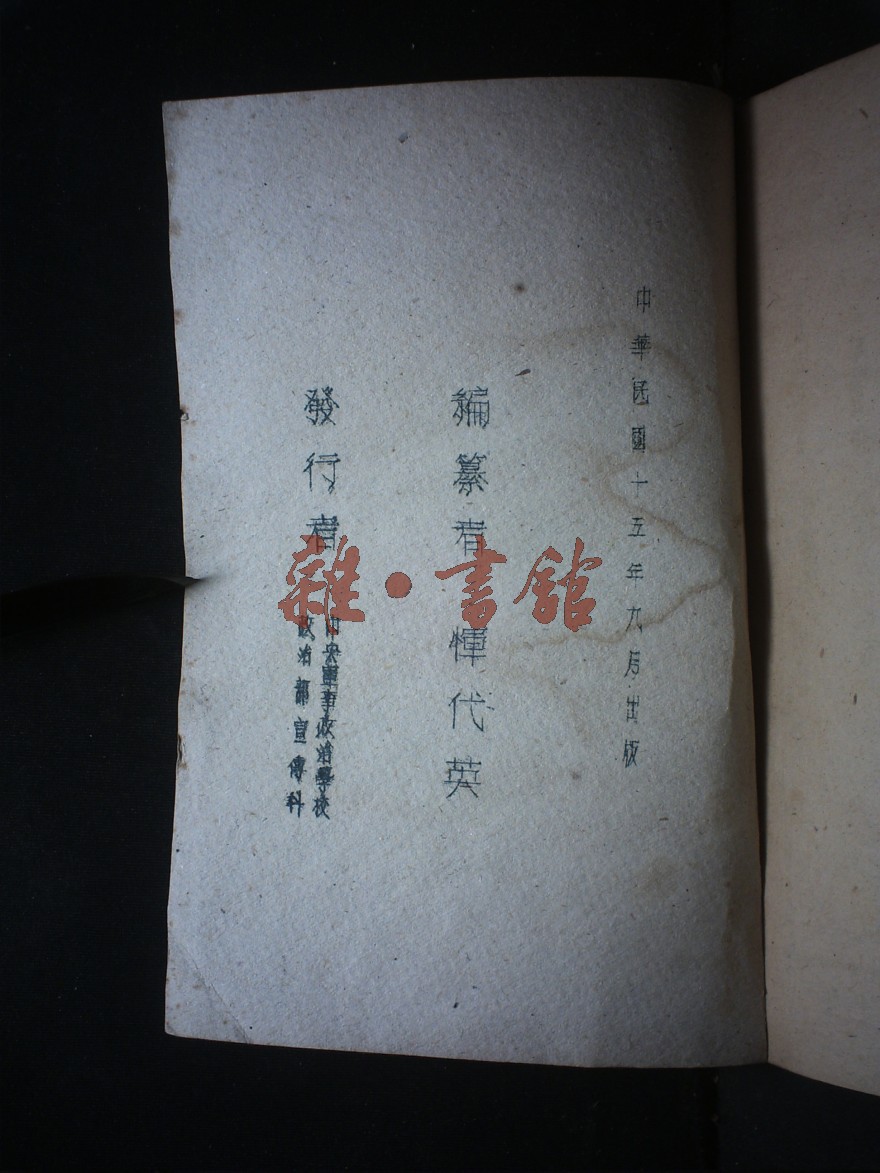 中華民國十五年九月出版
編纂者 惲代英
發行者 中央軍事政治學校
政治部宣傳科
雜·書館